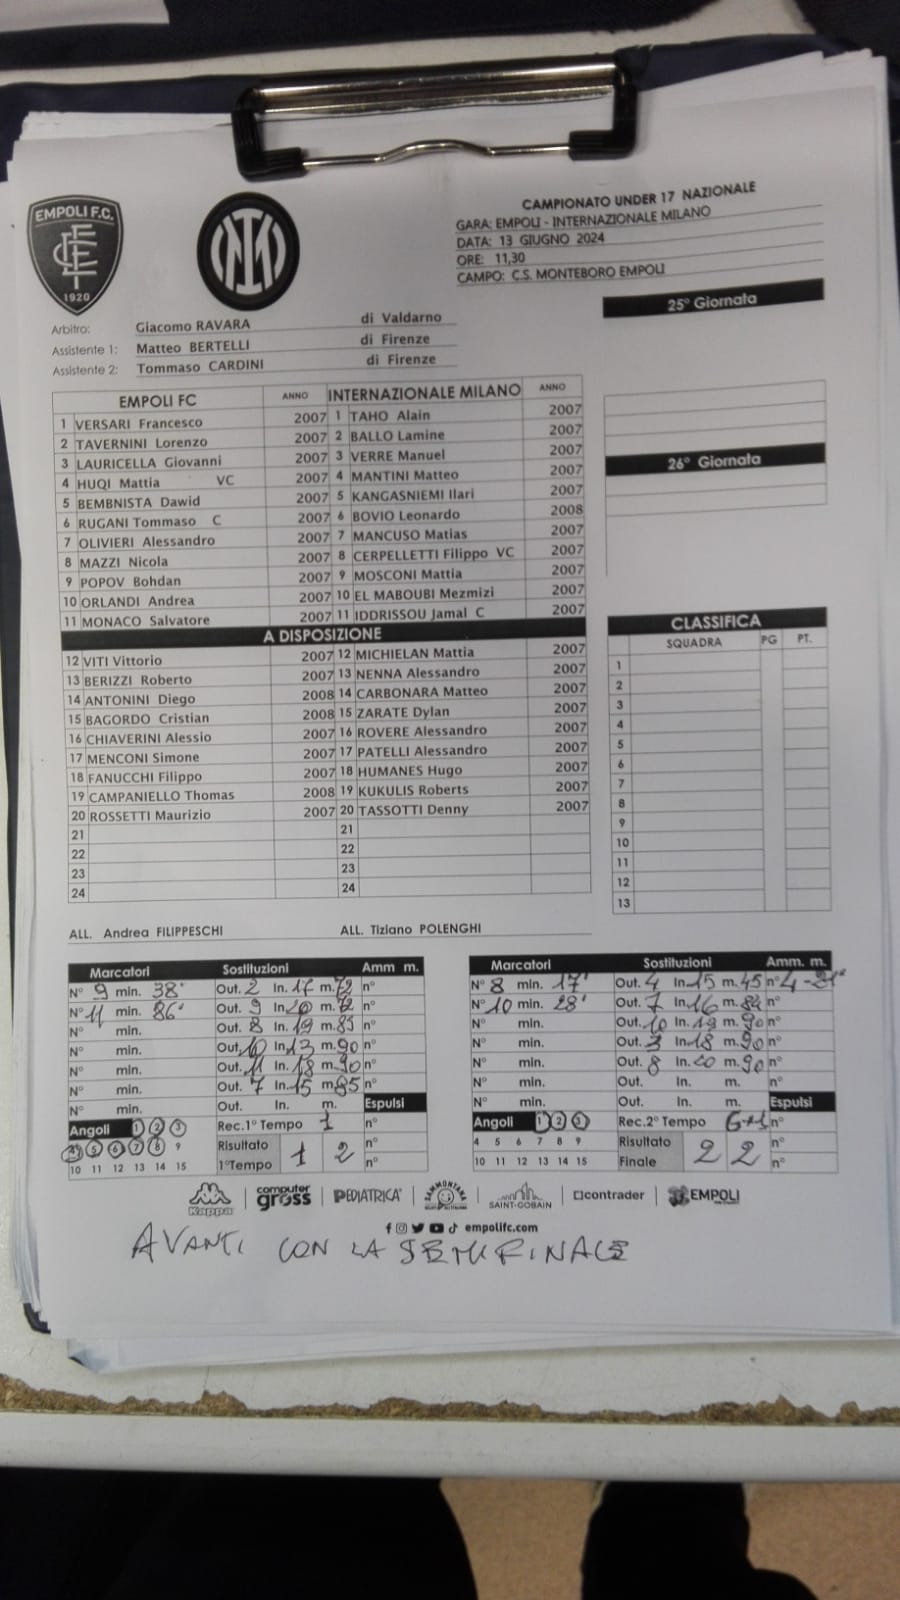 EMPOLI F.C.
1920
CAMPIONATO UNDER 17 NAZIONALE
GARA: EMPOLI - INTERNAZIONALE MILANO
DATA: 13 GIUGNO 2024
ORE: 11,30
CAMPO: C.S. MONTEBORO EMPOLI
25° Giornata
Arbitro: Giacomo RAVARA di Valdarno
Assistente 1: Matteo BERTELLI di Firenze
Assistente 2: Tommaso CARDINI di Firenze
EMPOLI FC ANNO INTERNAZIONALE MILANO ANNO
1 VERSARI Francesco 2007 1 TAHO Alain 2007
2 TAVERNINI Lorenzo 2007 2 BALLO Lamine 2007
3 LAURICELLA Giovanni 2007 3 VERRE Manuel 2007
4 HUQI Mattia VC 2007 4 MANTINI Matteo 2007
5 BEMBNISTA Dawid 2007 5 KANGASNIEMI Ilari 2007
6 RUGANI Tommaso C 2007 6 BOVIO Leonardo 2008
7 OLIVIERI Alessandro 2007 7 MANCUSO Matias 2007
8 MAZZI Nicola 2007 8 CERPELLETTI Filippo VC 2007
9 POPOV Bohdan 2007 9 MOSCONI Mattia 2007
10 ORLANDI Andrea 2007 10 EL MABOUBI Mezmizi 2007
11 MONACO Salvatore 2007 11 IDDRISSOU Jamal C 2007
26° Giornata
A DISPOSIZIONE
12 VITI Vittorio 2007 12 MICHIELAN Mattia 2007
13 BERIZZI Roberto 2007 13 NENNA Alessandro 2007
14 ANTONINI Diego 2008 14 CARBONARA Matteo 2007
15 BAGORDO Cristian 2008 15 ZARATE Dylan 2007
16 CHIAVERINI Alessio 2007 16 ROVERE Alessandro 2007
17 MENCONI Simone 2007 17 PATELLI Alessandro 2007
18 FANUCCHI Filippo 2007 18 HUMANES Hugo 2007
19 CAMPANIELLO Thomas 2008 19 KUKULIS Roberts 2007
20 ROSSETTI Maurizio 2007 20 TASSOTTI Denny 2007
21 21
22 22
23 23
24 24
CLASSIFICA
SQUADRA PG PT.
1
2
3
4
5
6
7
8
9
10
11
12
13
ALL. Andrea FILIPPESCHI ALL. Tiziano POLENGHI
Marcatori Sostituzioni Amm m.
N° 9 min. 38' Out. 2 In. 17 m. 72 n°
N° 11 min. 86' Out. 9 In. 20 m. 72 n°
N° min. Out. 8 In. 19 m. n°
N° min. Out. 10 In. 13 m. 90 n°
N° min. Out. 11 In. 18 m. 90 n°
N° min. Out. 7 In. 15 m. 85 n°
N° min. Out. In. m. Espulsi
Angoli 1 2 3 Rec. 1° Tempo 1 n°
4 5 6 7 8 9 Risultato 1 2 n°
10 11 12 13 14 15 1°Tempo n°
Marcatori Sostituzioni Amm. m.
N° 8 min. 17' Out. 4 In. 15 m. 45 n° 4 -
N° 10 min. 28' Out. 7 In. 16 m. 84 n°
N° min. Out. 10 In. 19 m. 90 n°
N° min. Out. 3 In. 18 m. 90 n°
N° min. Out. 8 In. 20 m. 90 n°
N° min. Out. In. m. n°
N° min. Out. In. m. Espulsi
Angoli 1 2 3 Rec. 2° Tempo n°
4 5 6 7 8 9 Risultato 2 2 n°
10 11 12 13 14 15 Finale n°
Kappa computer gross PEDIATRICA SAMMONTANA SAINT-GOBAIN contrader EMPOLI
empolifc.com
AVANTI CON LA SEMIFINALE